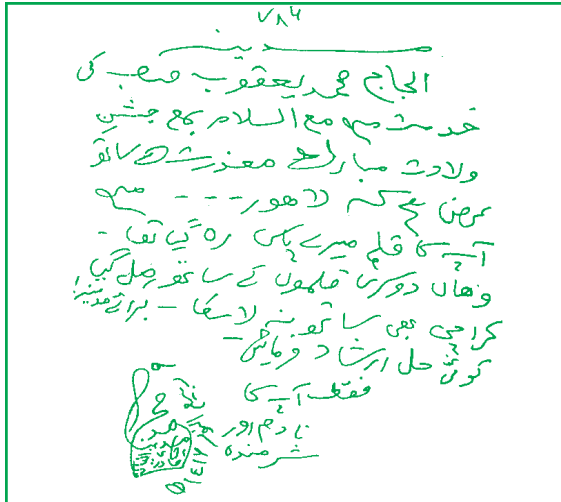 ۷۸۶
مدینہ
الحاج محمد یعقوب صاحب کی
خدمت میں مع السلام بمع جشنِ
ولادت مبارک معذرت کے ساتھ
عرض ہے کہ لاہور --- میں
آپ کا قلم میرے پاس رہ گیا تھا -
وہاں دوسری قلموں کے ساتھ مل گیا
کراچی بھی ساتھ نہ لا سکا - برائے مدینہ!
کوئی حل ارشاد فرمائیں -
فقط آپ کا
نادم اور
شرمندہ